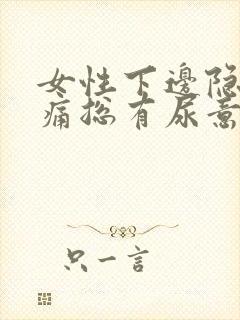 女性下邊隐
痛総有尿意
只一言